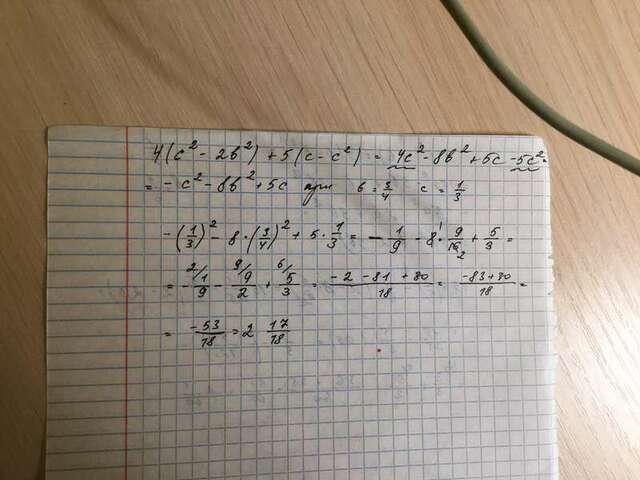 4(c² - 2b²) + 5(c - c²) = 4c² - 8b² + 5c - 5c² =
= - c² - 8b² + 5c при b = 3/4 c = 1/3
-(1/3)² - 8·(3/4)² + 5·1/3 = - 1/9 - 8¹· 9/16₂ + 5/3 =
= - ²/1/9 - ⁹/9/2 + ⁶/5/3 = (-2 - 81 + 30)/18 = (-83+30)/18 =
= -53/18 = 2 17/18